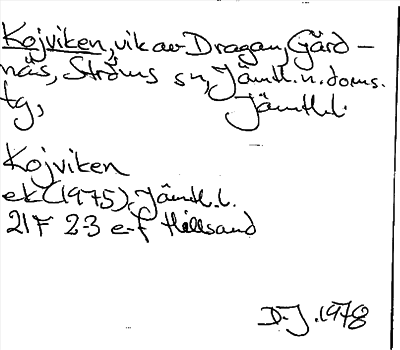 Kojviken, vik av Dragan, Gärd-
näs, Ströms sn, Jämtl. n. doms.
tg, Jämtl. l.
Kojviken
ek (1975), Jämtl. l.
21F 2-3 e-f Hillsand
D-J. 1978